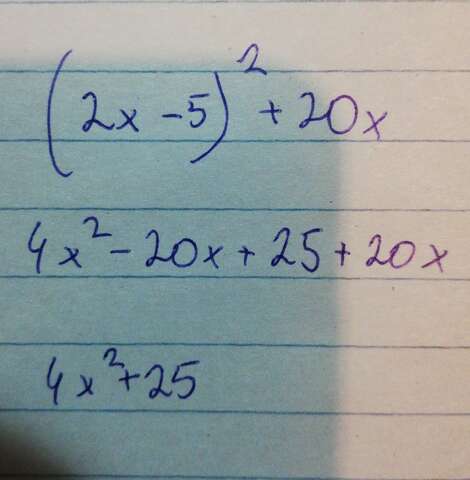 (2x - 5)² + 20x
4x² - 20x + 25 + 20x
4x² + 25